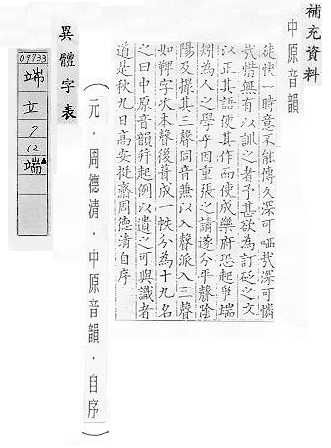 補充資料
中原音韻
徒快一時意不能傳久深可哂哉深可憐
哉惜無有以訓之者予甚欲為訂砭之文
以正其語便其作而使成樂府恐起爭端
矧為人之學乎因重張之請遂分平聲陰
陽及撮其三聲同音兼以入聲派入三聲
如鞞字次本聲後葺成一帙分為十九名
之曰中原音韻并起例以遺之可與識者
道是秋九日高安挺齋周德清自序
(元.周德清.中原音韻.自序)
異體字表
端
立
7
12
端